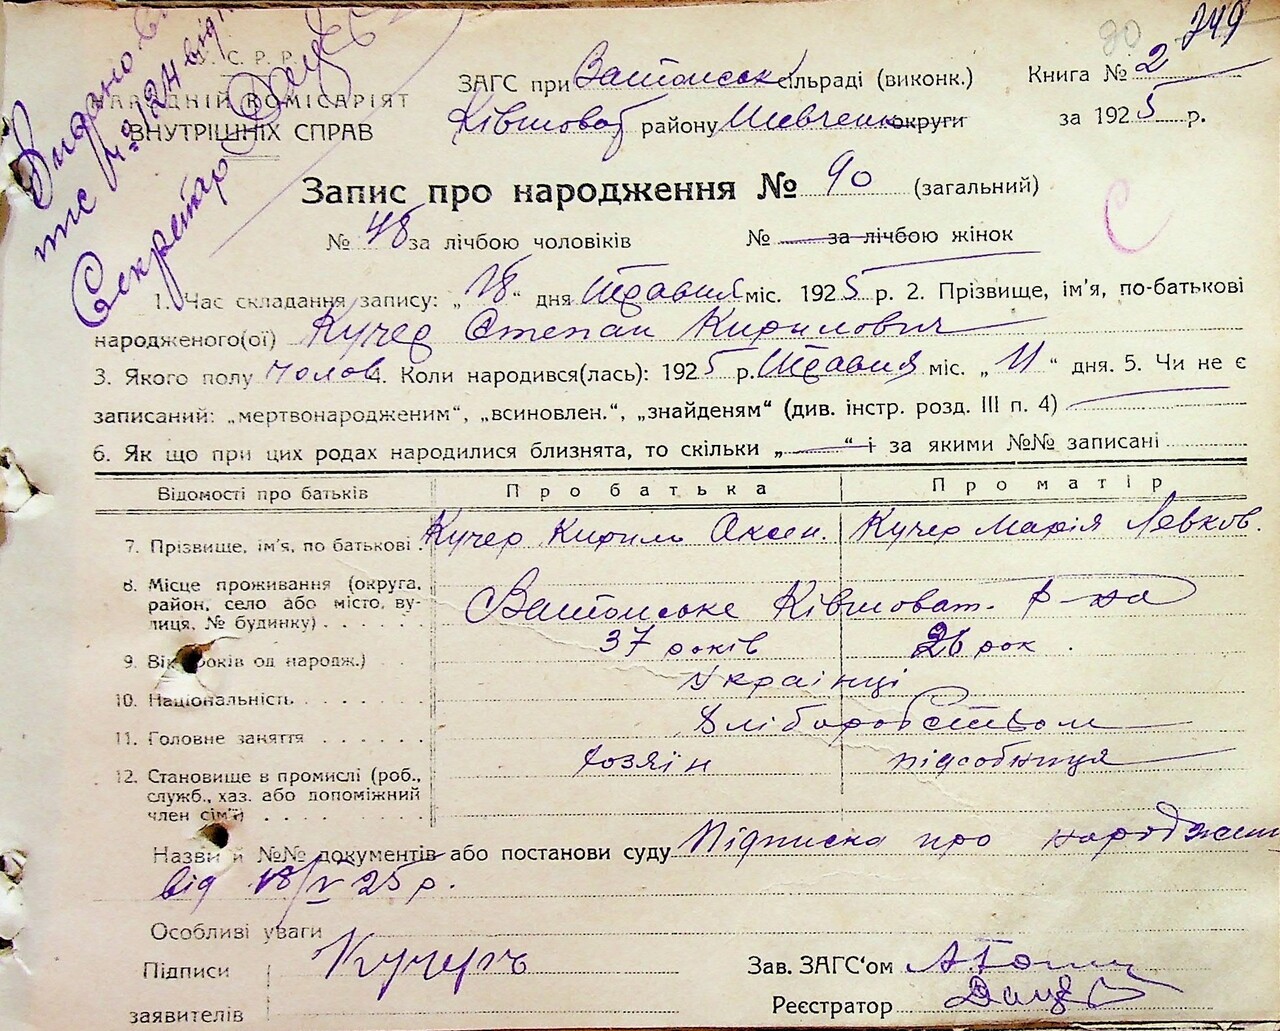 У. С. Р. Р.
НАРОДНІЙ КОМІСАРІЯТ
ВНУТРІШНІХ СПРАВ
Видано
Секретар
80 249
ЗАГС при сільраді (виконк.) Книга № 2
Ківшоват району Шевченк округи за 1925 р.
Запис про народження № 90 (загальний)
№ 48 за лічбою чоловіків № за лічбою жінок
С
1. Час складання запису: „18“ дня Травня міс. 1925 р. 2. Прізвище, ім'я, по-батькові
народженого(ої) Кучер Степан Кирилович
3. Якого полу чолов 4. Коли народився(лась): 1925 р. Травня міс. „11“ дня. 5. Чи не є
записаний: „мертвонародженим“, „всиновлен.“, „знайденям“ (див. інстр. розд. III п. 4)
6. Як що при цих родах народилися близнята, то скільки „ “ і за якими №№ записані
Відомості про батьків Про батька Про матір
7. Прізвище, ім'я, по батькові Кучер Кирило Аксен. Кучер Марія Левков.
8. Місце проживання (округа,
район, село або місто, ву-
лиця, № будинку) Ківшоват. р-на
9. Вік (років од народж.) 37 років 26 рок.
10. Національність Українці
11. Головне заняття Хліборобством
12. Становище в промислі (роб., хозяїн підсобниця
служб., хаз. або допоміжний
член сім'ї)
Назви й №№ документів або постанови суду Підписка про народжен
від 18/V 25 р.
Особливі уваги
Підписи Кучеръ Зав. ЗАГС'ом
заявителів Реєстратор